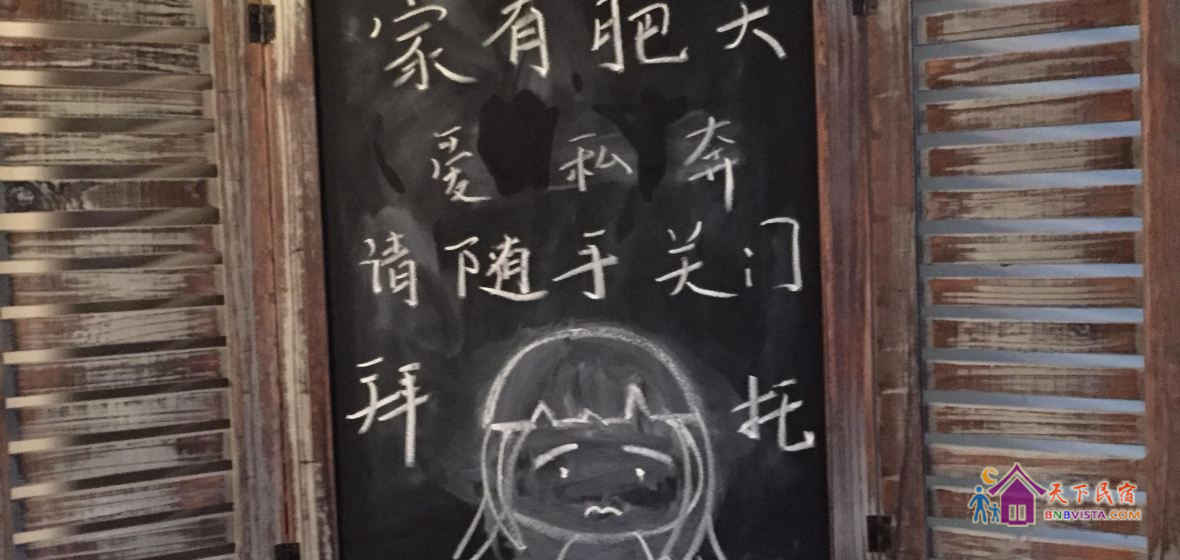 家有肥大
爱私奔
请随手关门
拜托
天下民宿
BNBVISTA.COM